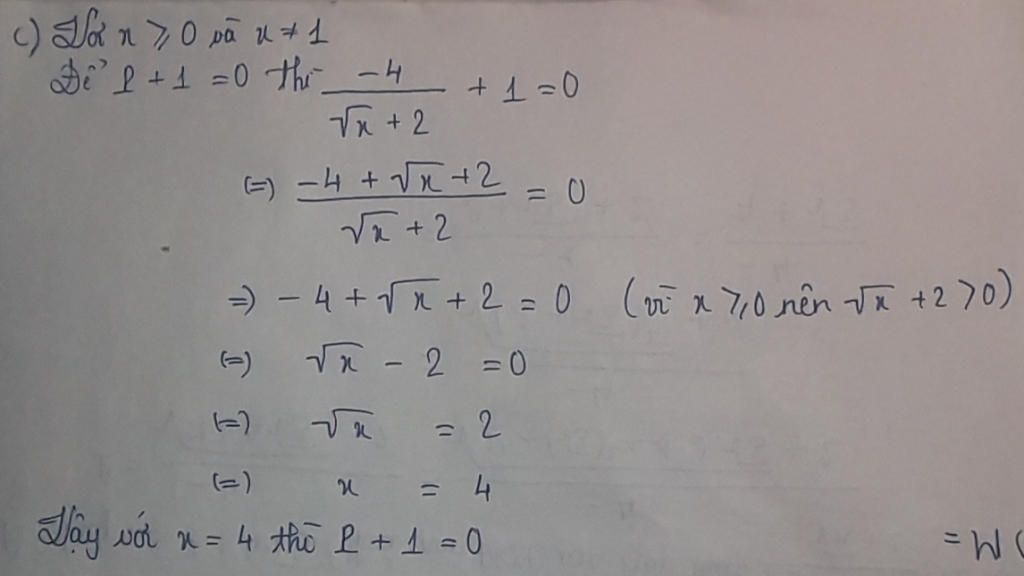 c) Với x ⩾ 0 và x ≠ 1
Để P + 1 = 0 thì -4/(√x + 2) + 1 = 0
(=) (-4 + √x + 2)/(√x + 2) = 0
=) - 4 + √x + 2 = 0 (vì x ⩾ 0 nên √x + 2 > 0)
(=) √x - 2 = 0
(=) √x = 2
(=) x = 4
Vậy với x = 4 thì P + 1 = 0